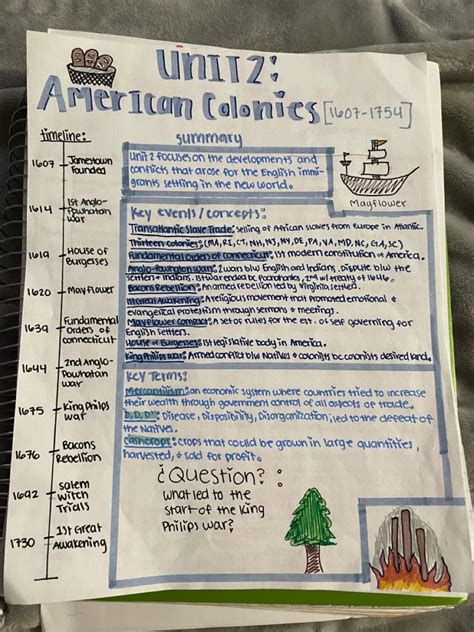 Unit 2:
American Colonies [1607-1754]
timeline:
1607 Jamestown
founded
1614 1st Anglo-
Powhatan
war
1619 House of
Burgesses
1620 Mayflower
1639 Fundamental
Orders of
connecticut
1644 2nd Anglo-
Powhatan
war
1675 King Philps
war
1676 Bacons
Rebellion
1692 salem
witch
Trials
1730 1st Great
Awakening
summary
Unit 2 focuses on the developments and
conflicts that arose for the English immi-
grants settling in the new world.
Mayflower
Key events/concepts:
Transatlantic Slave Trade: selling of African slaves from Europe in Atlantic.
Thirteen Colonies: (MA, RI, CT, NH, NJ, NY, DE, PA, VA, MD, NC, GA, SC)
Fundamental Orders of Connecticut: 1st modern constitution of America.
Anglo-Powhatan wars: 2 wars blw English and Indians, dispute blw the
settlers + Indians. 1st war ended bc Pocahontas, 2nd w/ treaty of 1646.
Bacons Rebellion: armed rebellion led by Virginia settlers.
1st Great Awakening: A religious movement that promoted emotional &
evangelical protestism through sermons + meetings.
Mayflower Compact: A set of rules for the est. of self governing for
English settlers.
House of Burgesses: 1st legislative body in America.
King Philips War: Armed conflict blw Natives + colonists bc colonists desired land.
Key Terms:
Mercantilism: an economic system where countries tried to increase
their wealth through government control of all aspects of trade.
Disease, Disposibility, Disorganization; led to the defeat of
the Natives.
cashcrops: crops that could be grown in large quantities,
harvested, & sold for profit.
¿Question?:
what led to the
start of the King
Philips war?